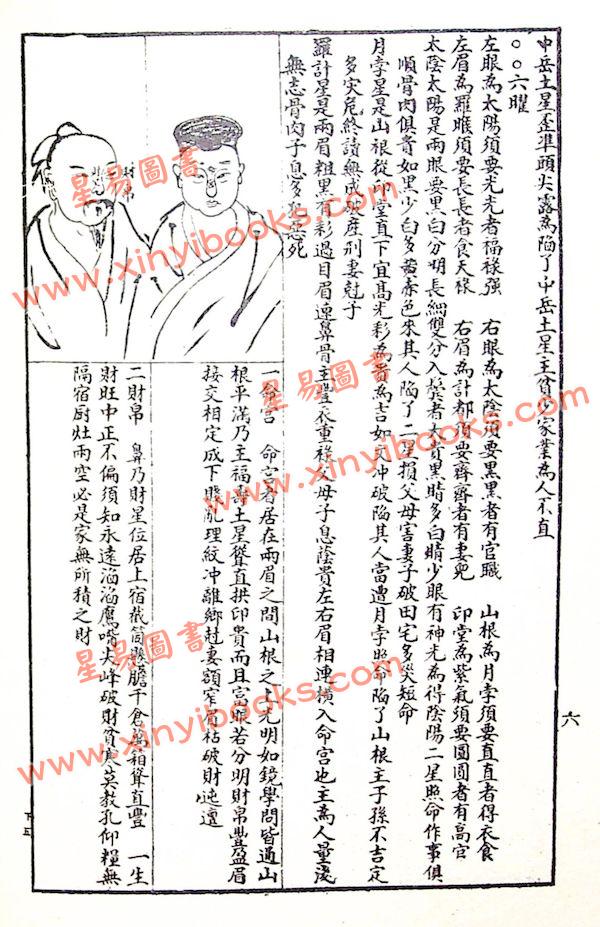 中岳土星歪準頭尖露為陷了中岳土星主貧少家業為人不直
○○六曜
左眼為太陽須要光光者福祿强　右眼為太陰須要黑黑者有官職　山根為月孛須要直直者得衣食
左眉為羅睺須要長長者食天祿　右眉為計都須要齊齊者有妻兒　印堂為紫氣須要圓圓者有高官
太陰太陽是兩眼要黑白分明長細雙分入鬓者大貴黑睛多白睛少眼有神光為得陰陽二星照命作事俱
順骨肉俱貴如黑少白多黃赤色來其人陷了二星損父母害妻子破田宅多災短命
月孛星是山根從印堂直下宜高光彩為貴為吉如文冲破陷其人當遭月孛照命陷了山根主子孫不吉定
多災危終讀無成破產刑妻尅子
羅計星是兩眉粗黑有彩過目眉連鼻骨主豐衣重祿父母子息蔭貴左右眉相連橫入命宮也主為人量淺
無志骨肉子息多犯惡死
一命宮　命宮者居在兩眉之間山根之上光明如鏡學問皆通山
根平滿乃主福壽土星聳直拱印貴而且富眼若分明財帛豐盈眉
接交相定成下賤亂理紋冲離鄉尅妻額窄眉枯破財迍邅
二財帛　鼻乃財星位居土宿截筒懸膽千倉萬箱聳直豐　一生
財旺中正不偏須知永遠滔滔鷹嘴尖峰破財貧寒莫教孔仰糧無
隔宿厨灶兩空必是家無所積之財
財帛
六
下五
星易圖書
www.xinyibooks.com
星易圖書
www.xinyibooks.com
星易圖書
www.xinyibooks.com